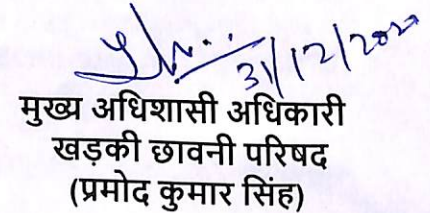 31/12/202
मुख्य अधिशासी अधिकारी
खड़की छावनी परिषद
(प्रमोद कुमार सिंह)